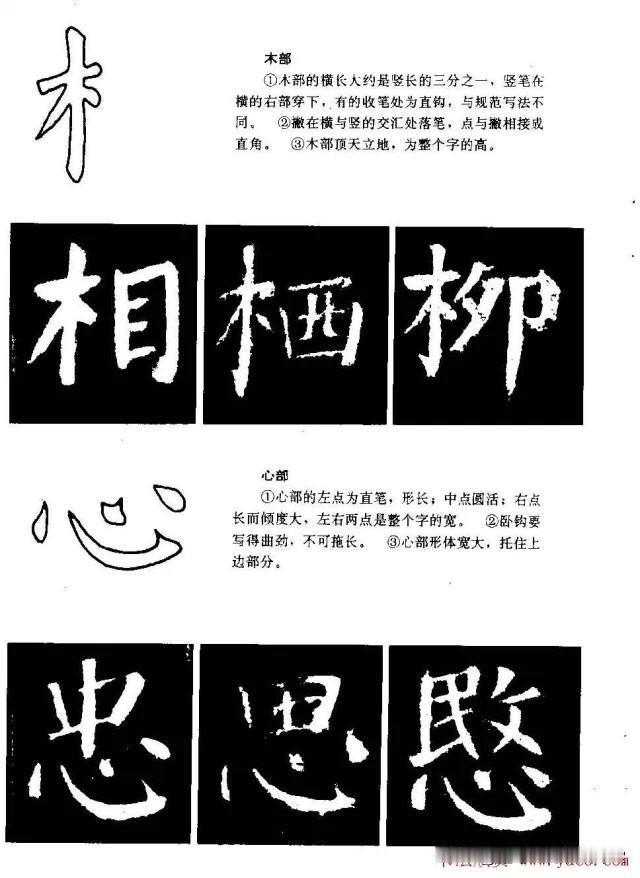 木
木部
①木部的横长大约是竖长的三分之一，竖笔在
横的右部穿下，有的收笔处为直钩，与规范写法不
同。　②撇在横与竖的交汇处落笔，点与撇相接成
直角。　③木部顶天立地，为整个字的高。
相 栖 柳
心
心部
①心部的左点为直笔，形长；中点圆活；右点
长而倾度大，左右两点是整个字的宽。　②卧钩要
写得曲劲，不可拖长。　③心部形体宽大，托住上
边部分。
忠 思 愍